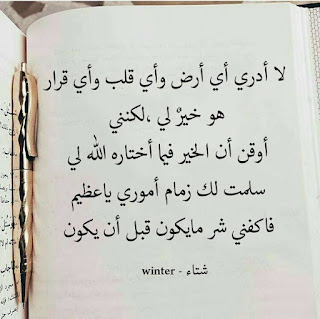 لا أدري أي أرض وأي قلب وأي قرار
هو خيرٌ لي ،لكنني
أوقن أن الخير فيما أختاره الله لي
سلمت لك زمام أموري ياعظيم
فاكفني شر مايكون قبل أن يكون
شتاء - winter